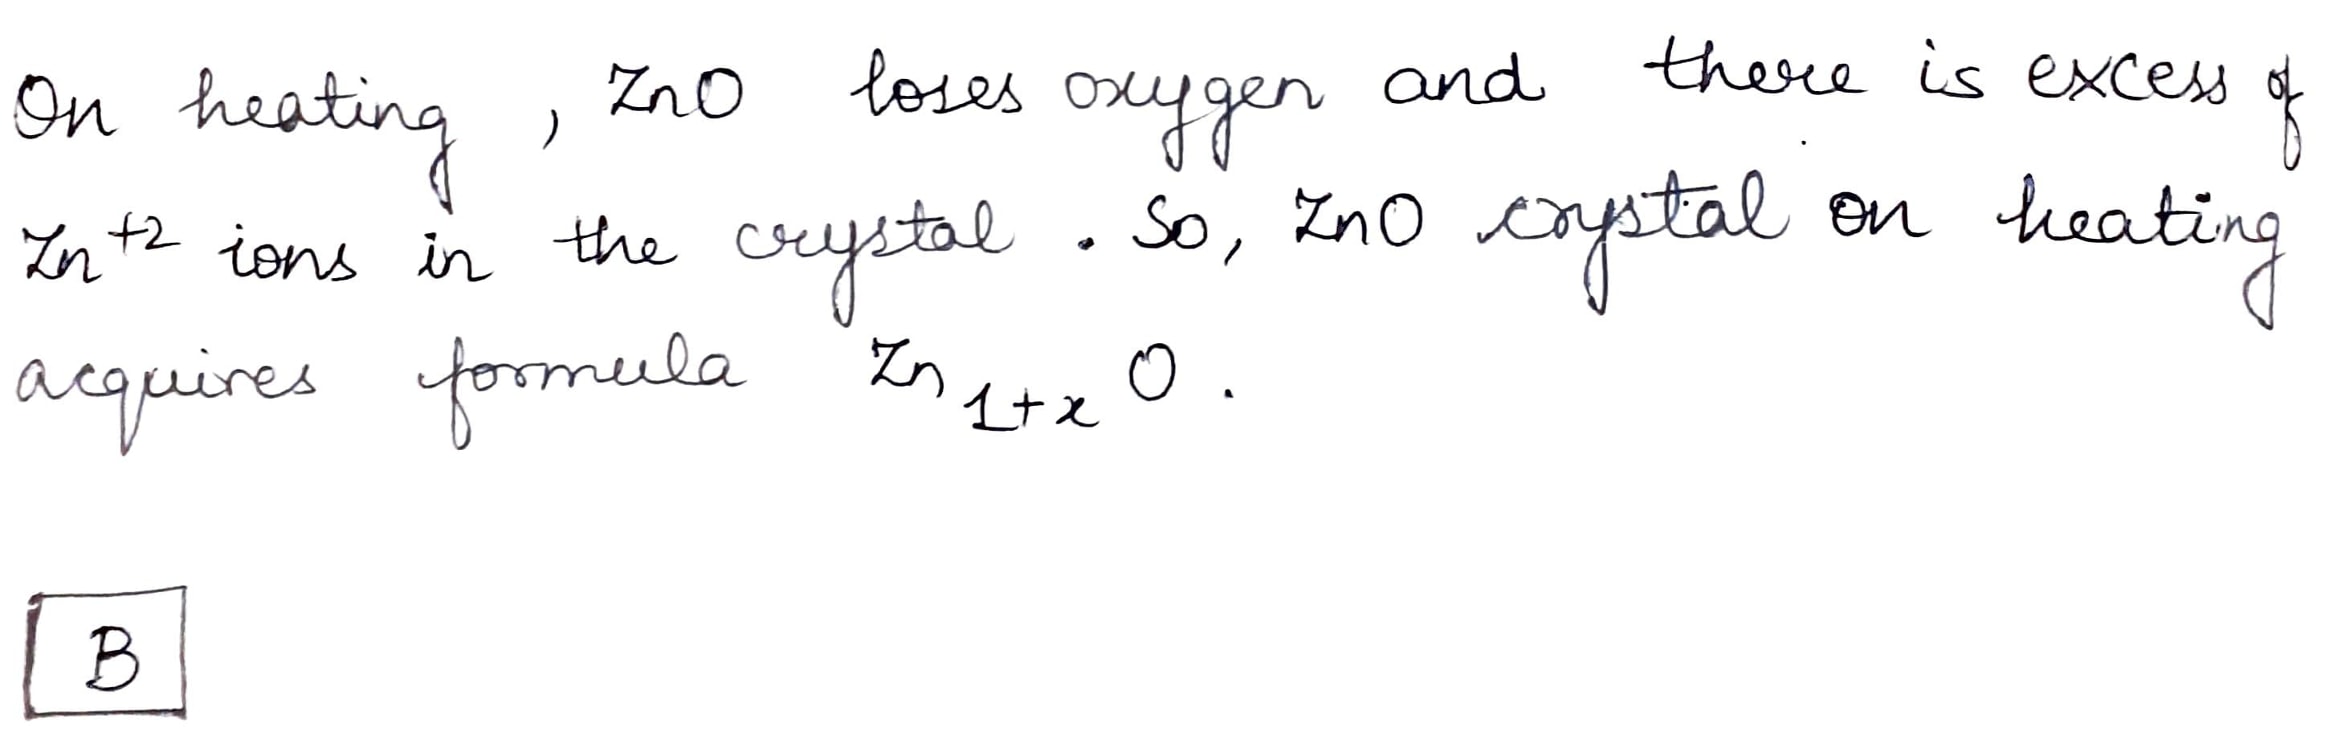 On heating , ZnO loses oxygen and there is excess of
Zn⁺² ions in the crystal . So, ZnO crystal on heating
acquires formula Zn₁₊ₓ O .
B